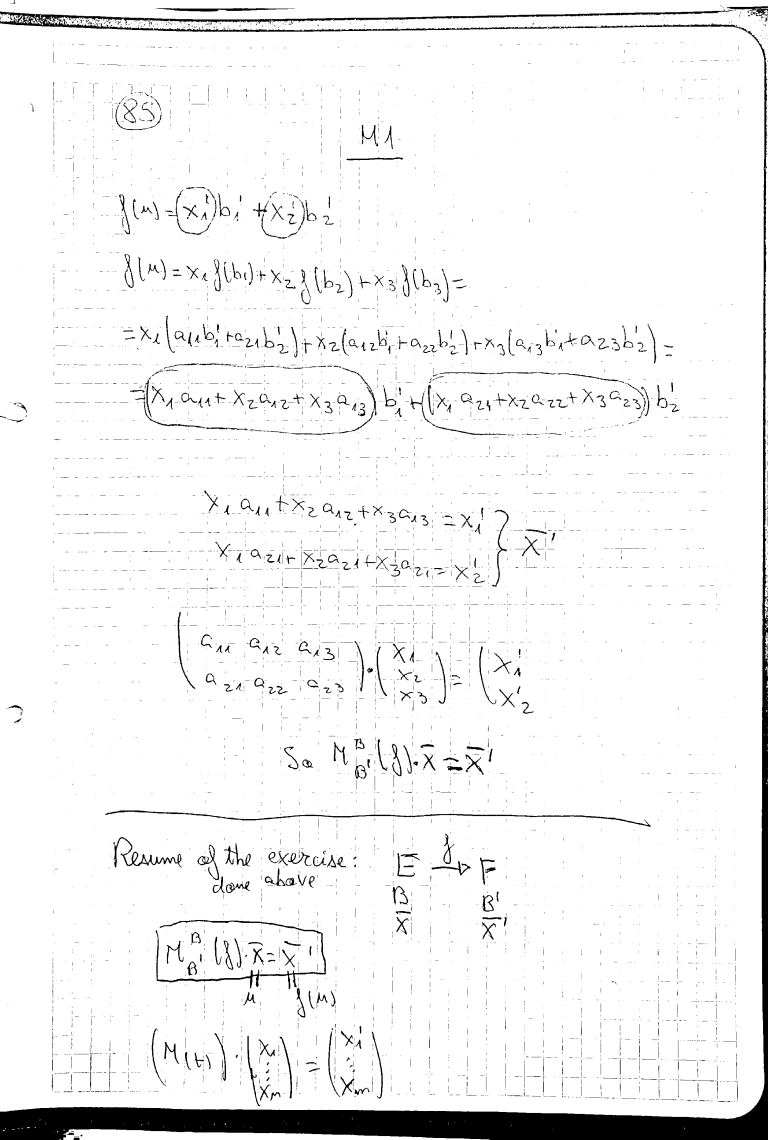 85
M1
f(u) = x₁' b₁' + x₂' b₂'
f(u) = x₁ f(b₁) + x₂ f(b₂) + x₃ f(b₃) =
= x₁ (a₁₁b₁' + a₂₁b₂') + x₂ (a₁₂b₁' + a₂₂b₂') + x₃ (a₁₃b₁' + a₂₃b₂') =
= (x₁ a₁₁ + x₂ a₁₂ + x₃ a₁₃) b₁' + (x₁ a₂₁ + x₂ a₂₂ + x₃ a₂₃) b₂'
x₁ a₁₁ + x₂ a₁₂ + x₃ a₁₃ = x₁' } x̄'
x₁ a₂₁ + x₂ a₂₁ + x₃ a₂₁ = x₂'
( a₁₁ a₁₂ a₁₃ ; a₂₁ a₂₂ a₂₃ ) · ( x₁ ; x₂ ; x₃ ) = ( x₁' ; x₂'
So M^B_B' (f) · x̄ = x̄'
Resume of the exercise: E →f F
done above B B'
x̄ x̄'
M^B_B' (f) · x̄ = x̄'
u f(u)
(M(f)) · ( x₁ ⋮ xₙ ) = ( x₁' ⋮ xₘ )